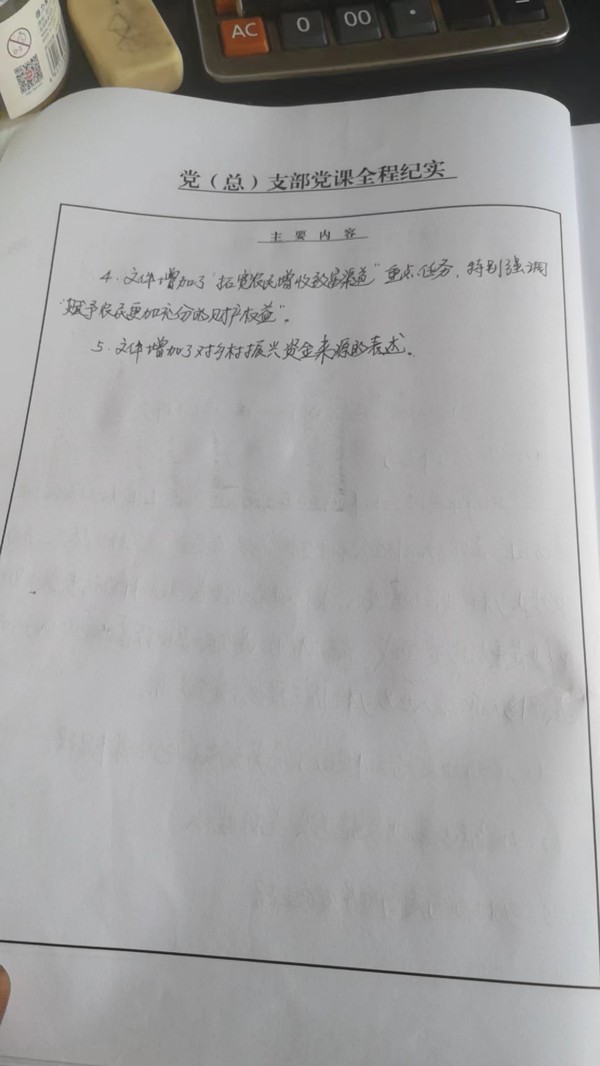 AC
0
00
·
党（总）支部党课全程纪实
主要内容
4.文件增加了“拓宽农民增收致富渠道”重点任务，特别强调
“赋予农民更加充分的财产权益”。
5.文件增加了对乡村振兴资金来源的表述。